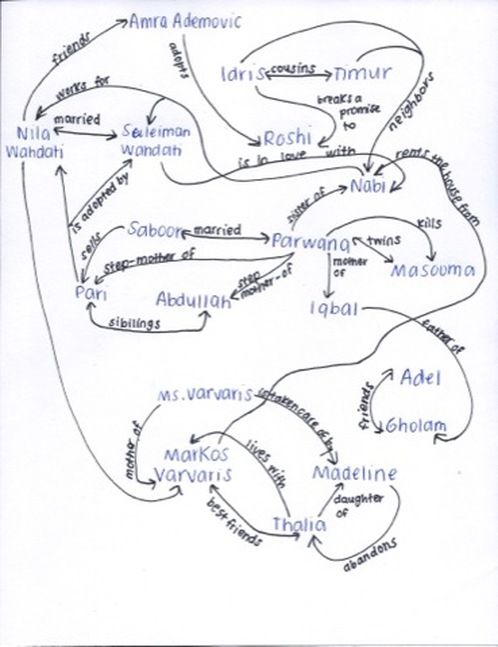 Amra Ademovic
friends
adopts
Idris
cousins
Timur
works for
breaks a
promise
to
neighbors
married
Nila
Wahdati
Suleiman
Wahdati
Roshi
is in love with
rents the house from
Nabi
is adopted by
sister of
Saboor
married
Parwana
kills
twins
sells
step-mother of
mother
of
Masooma
Pari
Abdullah
step
mother-of
Iqbal
sibilings
father of
Adel
friends
Gholam
Ms. Varvaris
is taken care of by
mother of
Markos
Varvaris
lives with
Madeline
daughter
of
best friends
Thalia
abandons